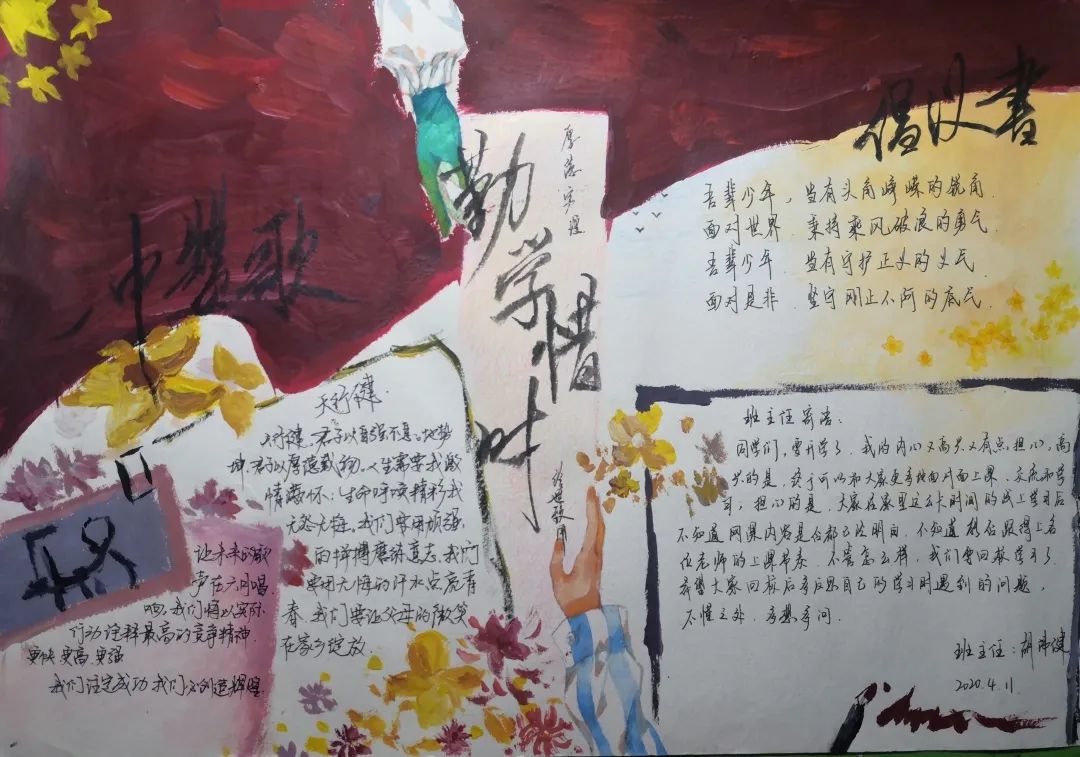 倡议书
吾辈少年，当有头角峥嵘的锐角
面对世界，秉持乘风破浪的勇气
吾辈少年，当有守护正义的义气
面对是非，坚守刚正不阿的底气
厚德
勤学惜时
歌
天行健
天行健，君子以自强不息；地势
坤，君子以厚德载物。人生需要我激
情满怀；生命呼唤精彩我
无怨无悔。我们要用顽强
的拼搏磨练意志，我们
要用无悔的汗水点亮青
春，我们要让父母的微笑
在家乡绽放。
让未来的歌
声在六月唱
响，我们将以实际
行动诠释最高的竞争精神
更快 更高 更强
我们注定成功 我们必创造辉煌
班主任寄语：
同学们，要开学了，我的内心又高兴又有点担心，高
兴的是，终于可以和大家更亲切面对面上课、交流和学
习，担心的是，大家在家里这么长时间的线上学习后
不知道网课内容是否都已经明白，不知道能否跟得上各
位老师的上课节奏，不管怎么样，我们要回校学习了，
希望大家回校后多反思自己的学习时遇到的问题，
不懂之处，多想多问．
班主任：胡伟健
2020.4.11